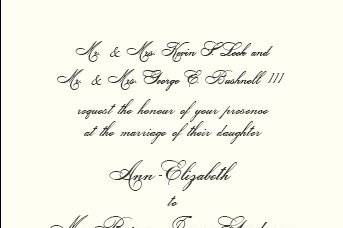 Mr. & Mrs. Kevin S Look and
Mr. & Mrs. George E. Bushnell III
request the honour of your presence
at the marriage of their daughter
Ann-Elizabeth
to
Mr.